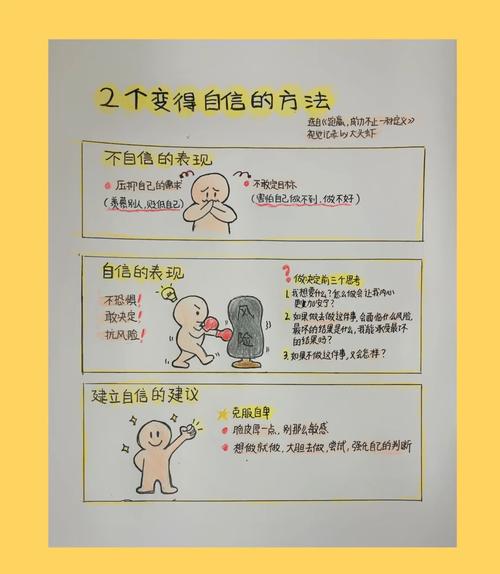 2个变得自信的方法
选自《跑赢,成功不止一种定义》
视觉记录by大头虾
不自信的表现
压抑自己的需求
(羡慕别人,贬低自己)
不敢定目标
(害怕自己做不到,做不好)
自信的表现
不恐惧!
敢决定!
抗风险!
风险
? 做决定前三个思考
1. 我想要什么?怎么做会让我内心
更加安宁?
2. 如果做去做这件事,会面临什么风险,
最坏的结果是什么,我能承受最坏
的结果吗?
3. 如果不做这件事,又会怎样?
建立自信的建议
克服自卑
脸皮厚一点,别那么敏感
想做就做,大胆去做,尝试,强化自己的判断